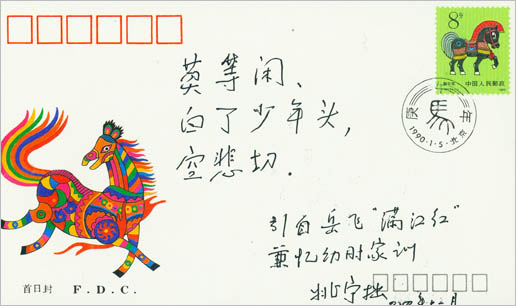 8分
中国人民邮政
庚馬年
1990·1·5·北京
莫等闲、
白了少年头，
空悲切．
引自岳飞“满江红”
兼忆幼时家训
首日封 F. D. C.